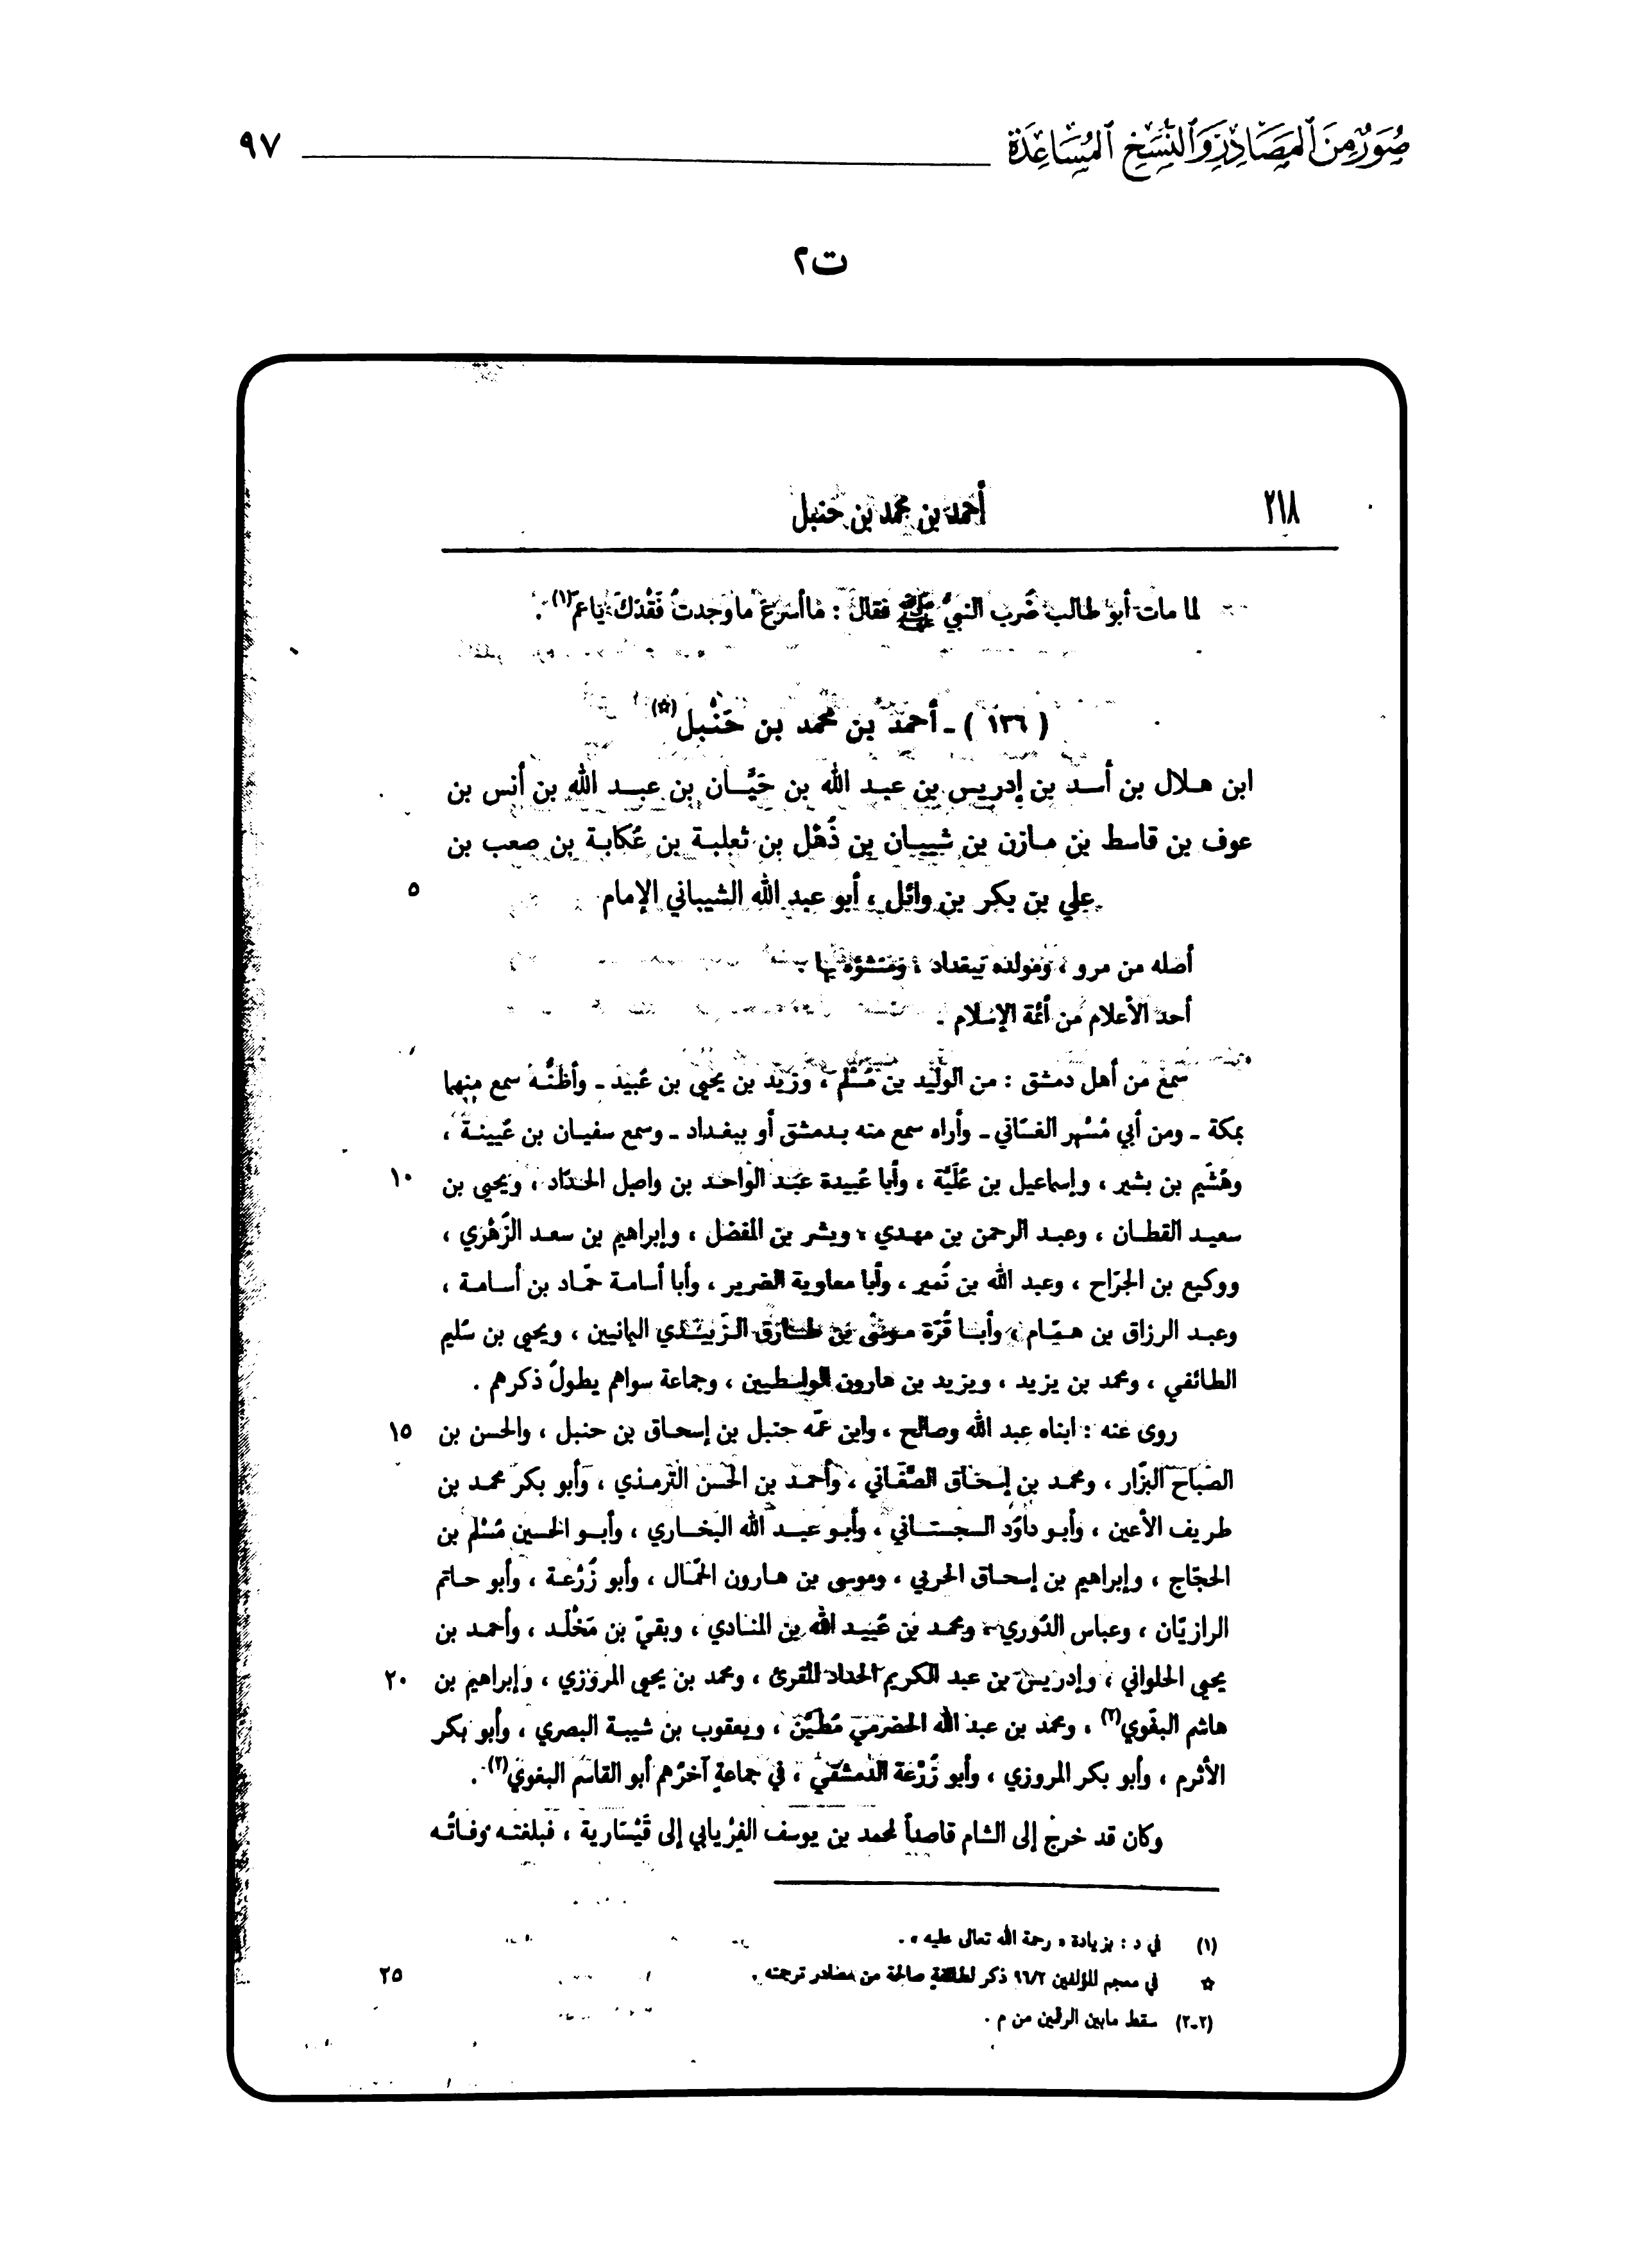 صُوَرٌ مِنَ ٱلمَصَادِرِ وَٱلنُّسَخِ ٱلمُسَاعِدَة ٩٧
ت٢
٢١٨ أحمد بن محمد بن حنبل
لما مات أبو طالب ضُرب النبيُّ ﷺ فقال : ماأسرعَ ماوَجدتُ فَقْدَكَ ياعمّ(١) .
( ١٣٦ ) ـ أحمد بن محمد بن حَنْبل(☆)
ابن هلال بن أسد بن إدريس بن عبد الله بن حَيَّان بن عبد الله بن أنس بن
عوف بن قاسط بن مازن بن شيبان بن ذُهْل بن ثعلبة بن عُكابة بن صعب بن
علي بن بكر بن وائل ، أبو عبد الله الشيباني الإمام ٥
أصله من مرو ، ومولده ببغداد ، ومنشؤه بها .
أحد الأعلام من أئمة الإسلام .
سمع من أهل دمشق : من الوليد بن مُسْلم ، وزيد بن يحيى بن عُبيد ـ وأظنُّه سمع منهما
بمكة ـ ومن أبي مُسْهر الغسّاني ـ وأراه سمع منه بدمشق أو ببغداد ـ وسمع سفيان بن عُيينة ،
وهُشَيم بن بشير ، وإسماعيل بن عُلَيَّة ، وأبا عُبيدة عبد الواحد بن واصل الحدّاد ، ويحيى بن ١٠
سعيد القطان ، وعبد الرحمن بن مهدي ، وبشر بن المفضل ، وإبراهيم بن سعد الزُهْري ،
ووكيع بن الجرّاح ، وعبد الله بن نُمير ، وأبا معاوية الضرير ، وأبا أسامة حمّاد بن أسامة ،
وعبد الرزاق بن همّام ، وأبا قُرّة موسى بن طارق الزَّبيدي اليمانيين ، ويحيى بن سُليم
الطائفي ، ومحمد بن يزيد ، ويزيد بن هارون الواسطيين ، وجماعة سواهم يطولُ ذكرهم .
روى عنه : ابناه عبد الله وصالح ، وابن عمّه حنبل بن إسحاق بن حنبل ، والحسن بن ١٥
الصباح البزّار ، ومحمد بن إسحاق الصَّغَاني ، وأحمد بن الحسن الترمذي ، وأبو بكر محمد بن
طريف الأعين ، وأبو داوُد السجستاني ، وأبو عبد الله البخاري ، وأبو الحسين مُسْلم بن
الحجّاج ، وإبراهيم بن إسحاق الحربي ، وموسى بن هارون الحمّال ، وأبو زُرْعة ، وأبو حاتم
الرازيّان ، وعباس الدُوري ، ومحمد بن عُبيد الله بن المنادي ، وبقيّ بن مَخْلَد ، وأحمد بن
يحيى الحلواني ، وإدريس بن عبد الكريم الحداد المقرئ ، ومحمد بن يحيى المروزي ، وإبراهيم بن ٢٠
هاشم البغَوي(٢) ، ومحمد بن عبد الله الحضرمي مُطَيَّن ، ويعقوب بن شيبة البصري ، وأبو بكر
الأثرم ، وأبو بكر المروزي ، وأبو زُرْعة الدمشقي ، في جماعةٍ آخرُهم أبو القاسم البغويّ(٢) .
وكان قد خرج إلى الشام قاصداً لمحمد بن يوسف الفِرْيابي إلى قَيْسَارية ، فبلغته وفاتُه
(١) في د : بزيادة « رحمة الله تعالى عليه » .
☆ في معجم المؤلفين ٩٦/٢ ذكر لطائفةٍ صالحة من مصادر ترجمته . ٢٥
(٢-٢) سقط مابين الرقمين من م .